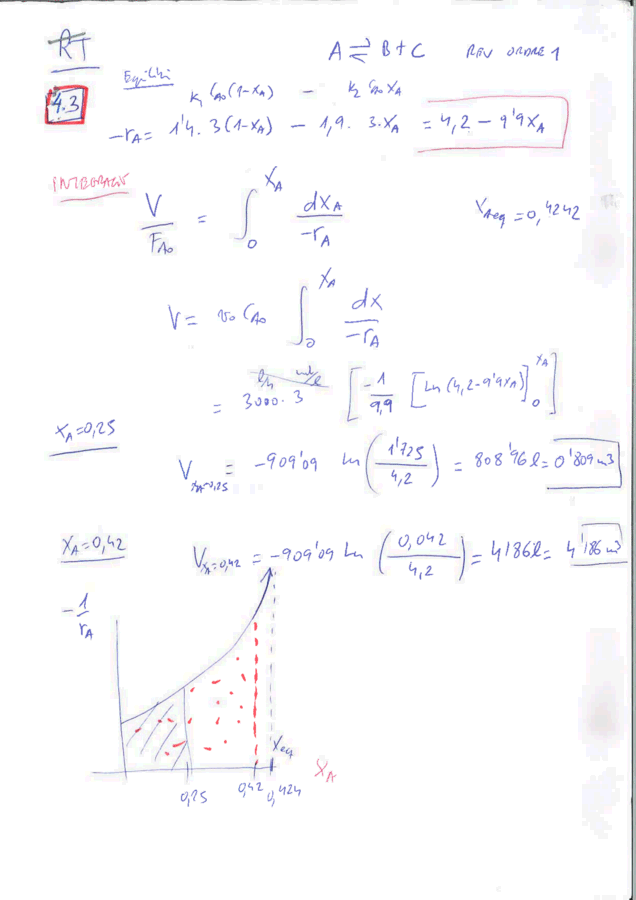 RT
A ⇌ B + C REV ORDRE 1
4.3
Equilibri
k₁ C_A0 (1-x_A) - k₂ C_A0 x_A
-r_A = 1'4 · 3(1-x_A) - 1,9 · 3 · x_A = 4,2 - 9'9 x_A
INTEGRACIÓ
V/F_A0 = ∫₀^{x_A} dx_A/-r_A
x_Aeq = 0,4242
V = v₀ C_A0 ∫₀^{x_A} dx/-r_A
= 3000 · 3 [-1/9,9 [Ln (4,2-9'9x_A)]₀^{x_A}]
x_A = 0,25
V_{x_A=0,25} = -909'09 Ln (1'725/4,2) = 808'96 l = 0'809 m3
x_A = 0,42
V_{x_A=0,42} = -909'09 Ln (0,042/4,2) = 4186 l = 4'186 m3
-1/r_A
x_eq
x_A
0,25 0,42 0,424